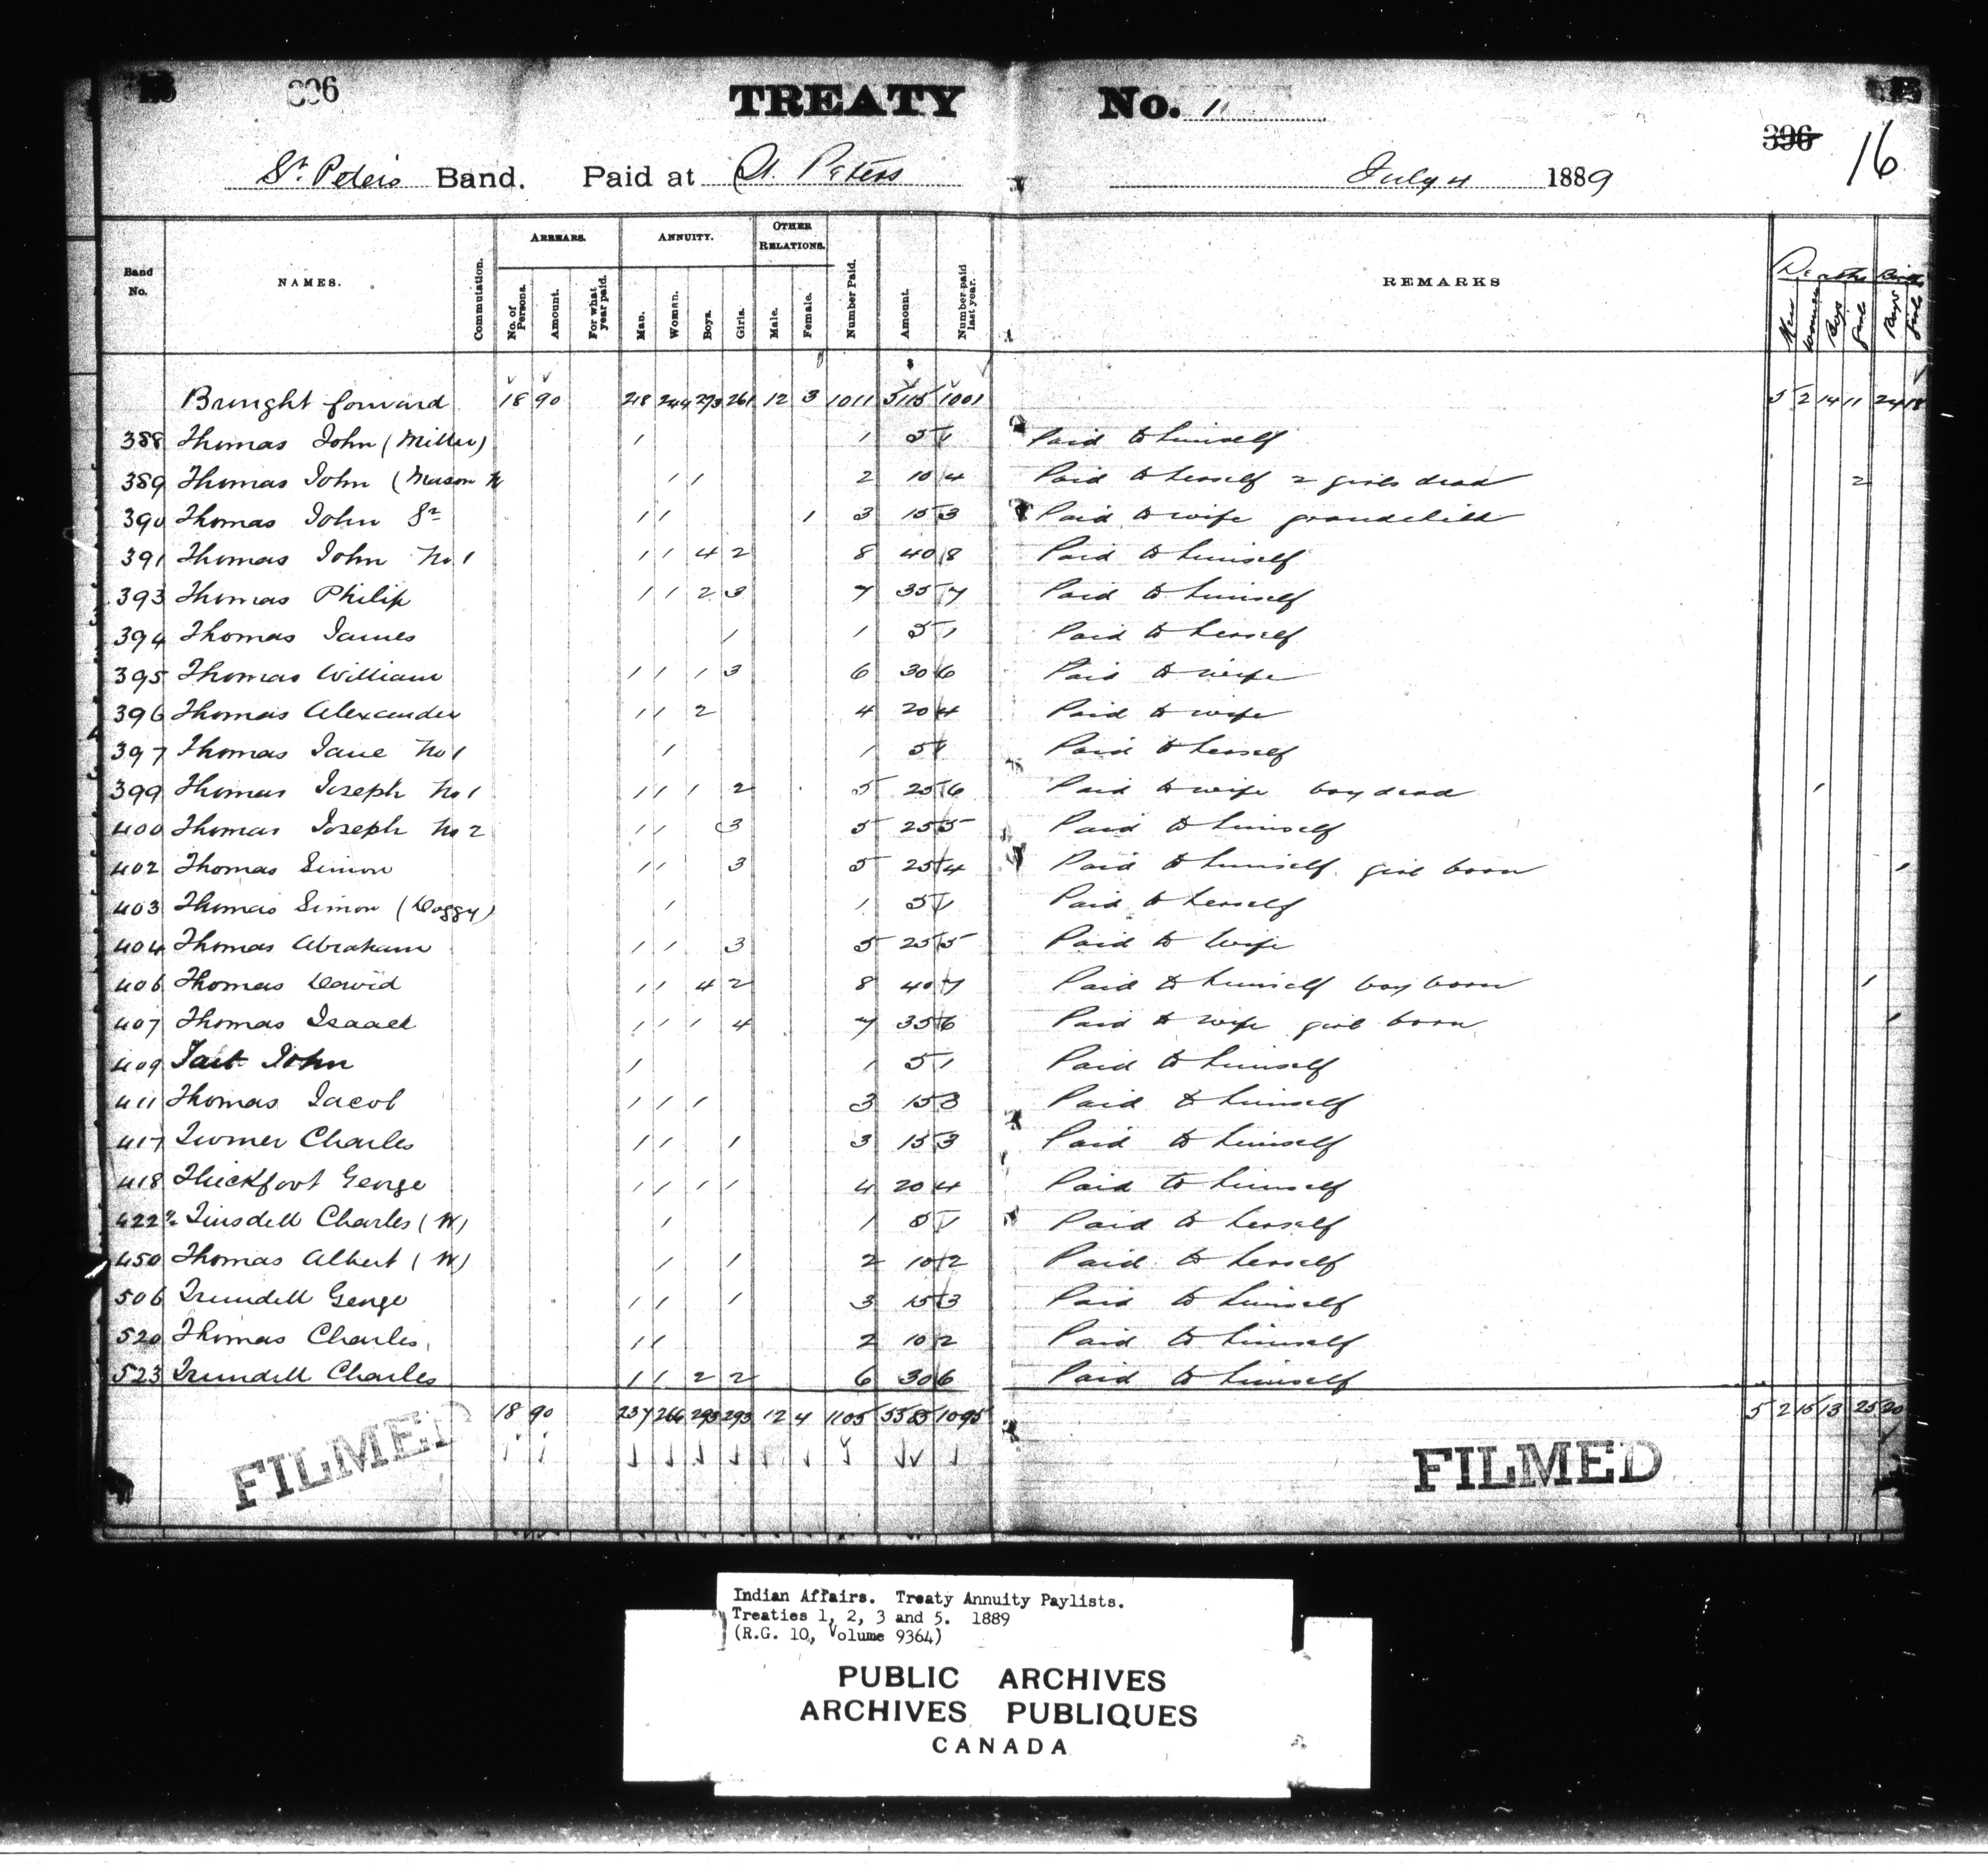 396
TREATY No. 1
396 16
St. Peters Band. Paid at St. Peters July 4 1889
Band No. NAMES. Commutation. ARREARS. No. of Persons. Amount. For what year paid. ANNUITY. Man. Woman. Boys. Girls. OTHER RELATIONS. Male. Female. Number Paid. Amount. Number paid last year. REMARKS Deaths Men Women Boys Girls Births Boys Girls
Brought forward 18 90 218 244 273 261 12 3 1011 5115 1001 5 2 14 11 24 18
388 Thomas John (Miller) 1 1 5 1 Paid to himself
389 Thomas John (Mason W 1 1 2 10 4 Paid to herself 2 girls dead 2
390 Thomas John Sr 1 1 1 3 15 3 Paid to wife grandchild
391 Thomas John No 1 1 1 4 2 8 40 8 Paid to himself
393 Thomas Philip 1 1 2 3 7 35 7 Paid to himself
394 Thomas James 1 1 5 1 Paid to herself
395 Thomas William 1 1 1 3 6 30 6 Paid to wife
396 Thomas Alexander 1 1 2 4 20 4 Paid to wife
397 Thomas Jane No 1 1 1 5 1 Paid to herself
399 Thomas Joseph No 1 1 1 1 2 5 25 6 Paid to wife boy dead 1
400 Thomas Joseph No 2 1 1 3 5 25 5 Paid to himself
402 Thomas Simon 1 1 3 5 25 4 Paid to himself girl born 1
403 Thomas Simon (Doggy) 1 1 5 1 Paid to herself
404 Thomas Abraham 1 1 3 5 25 5 Paid to Wife
406 Thomas David 1 1 4 2 8 40 7 Paid to himself boy born 1
407 Thomas Isaack 1 1 1 4 7 35 6 Paid to wife girl born 1
409 Tait John 1 1 5 1 Paid to himself
411 Thomas Jacob 1 1 1 3 15 3 Paid to himself
417 Turner Charles 1 1 1 3 15 3 Paid to himself
418 Thickfoot George 1 1 1 1 4 20 4 Paid to himself
422½ Tinsdell Charles (W) 1 1 5 1 Paid to herself
450 Thomas Albert (W) 1 1 2 10 2 Paid to herself
506 Trundell George 1 1 1 3 15 3 Paid to himself
520 Thomas Charles 1 1 2 10 2 Paid to himself
523 Trundell Charles 1 1 2 2 6 30 6 Paid to himself
18 90 237 266 293 293 12 4 1105 5585 1095 5 2 15 13 25 20
FILMED FILMED
Indian Affairs. Treaty Annuity Paylists.
Treaties 1, 2, 3 and 5. 1889
(R.G. 10, Volume 9364)
PUBLIC ARCHIVES
ARCHIVES PUBLIQUES
CANADA